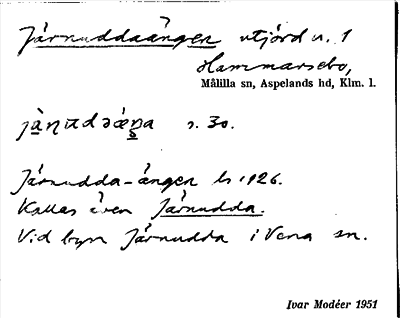 Järnuddaängen utjord n. 1
Hammarsebo,
Målilla sn, Aspelands hd, Klm. l.
s. 30.
Järnudda-ängen ls 1926.
Kallas även Järnudda.
Vid byn Järnudda i Vena sn.
Ivar Modéer 1951